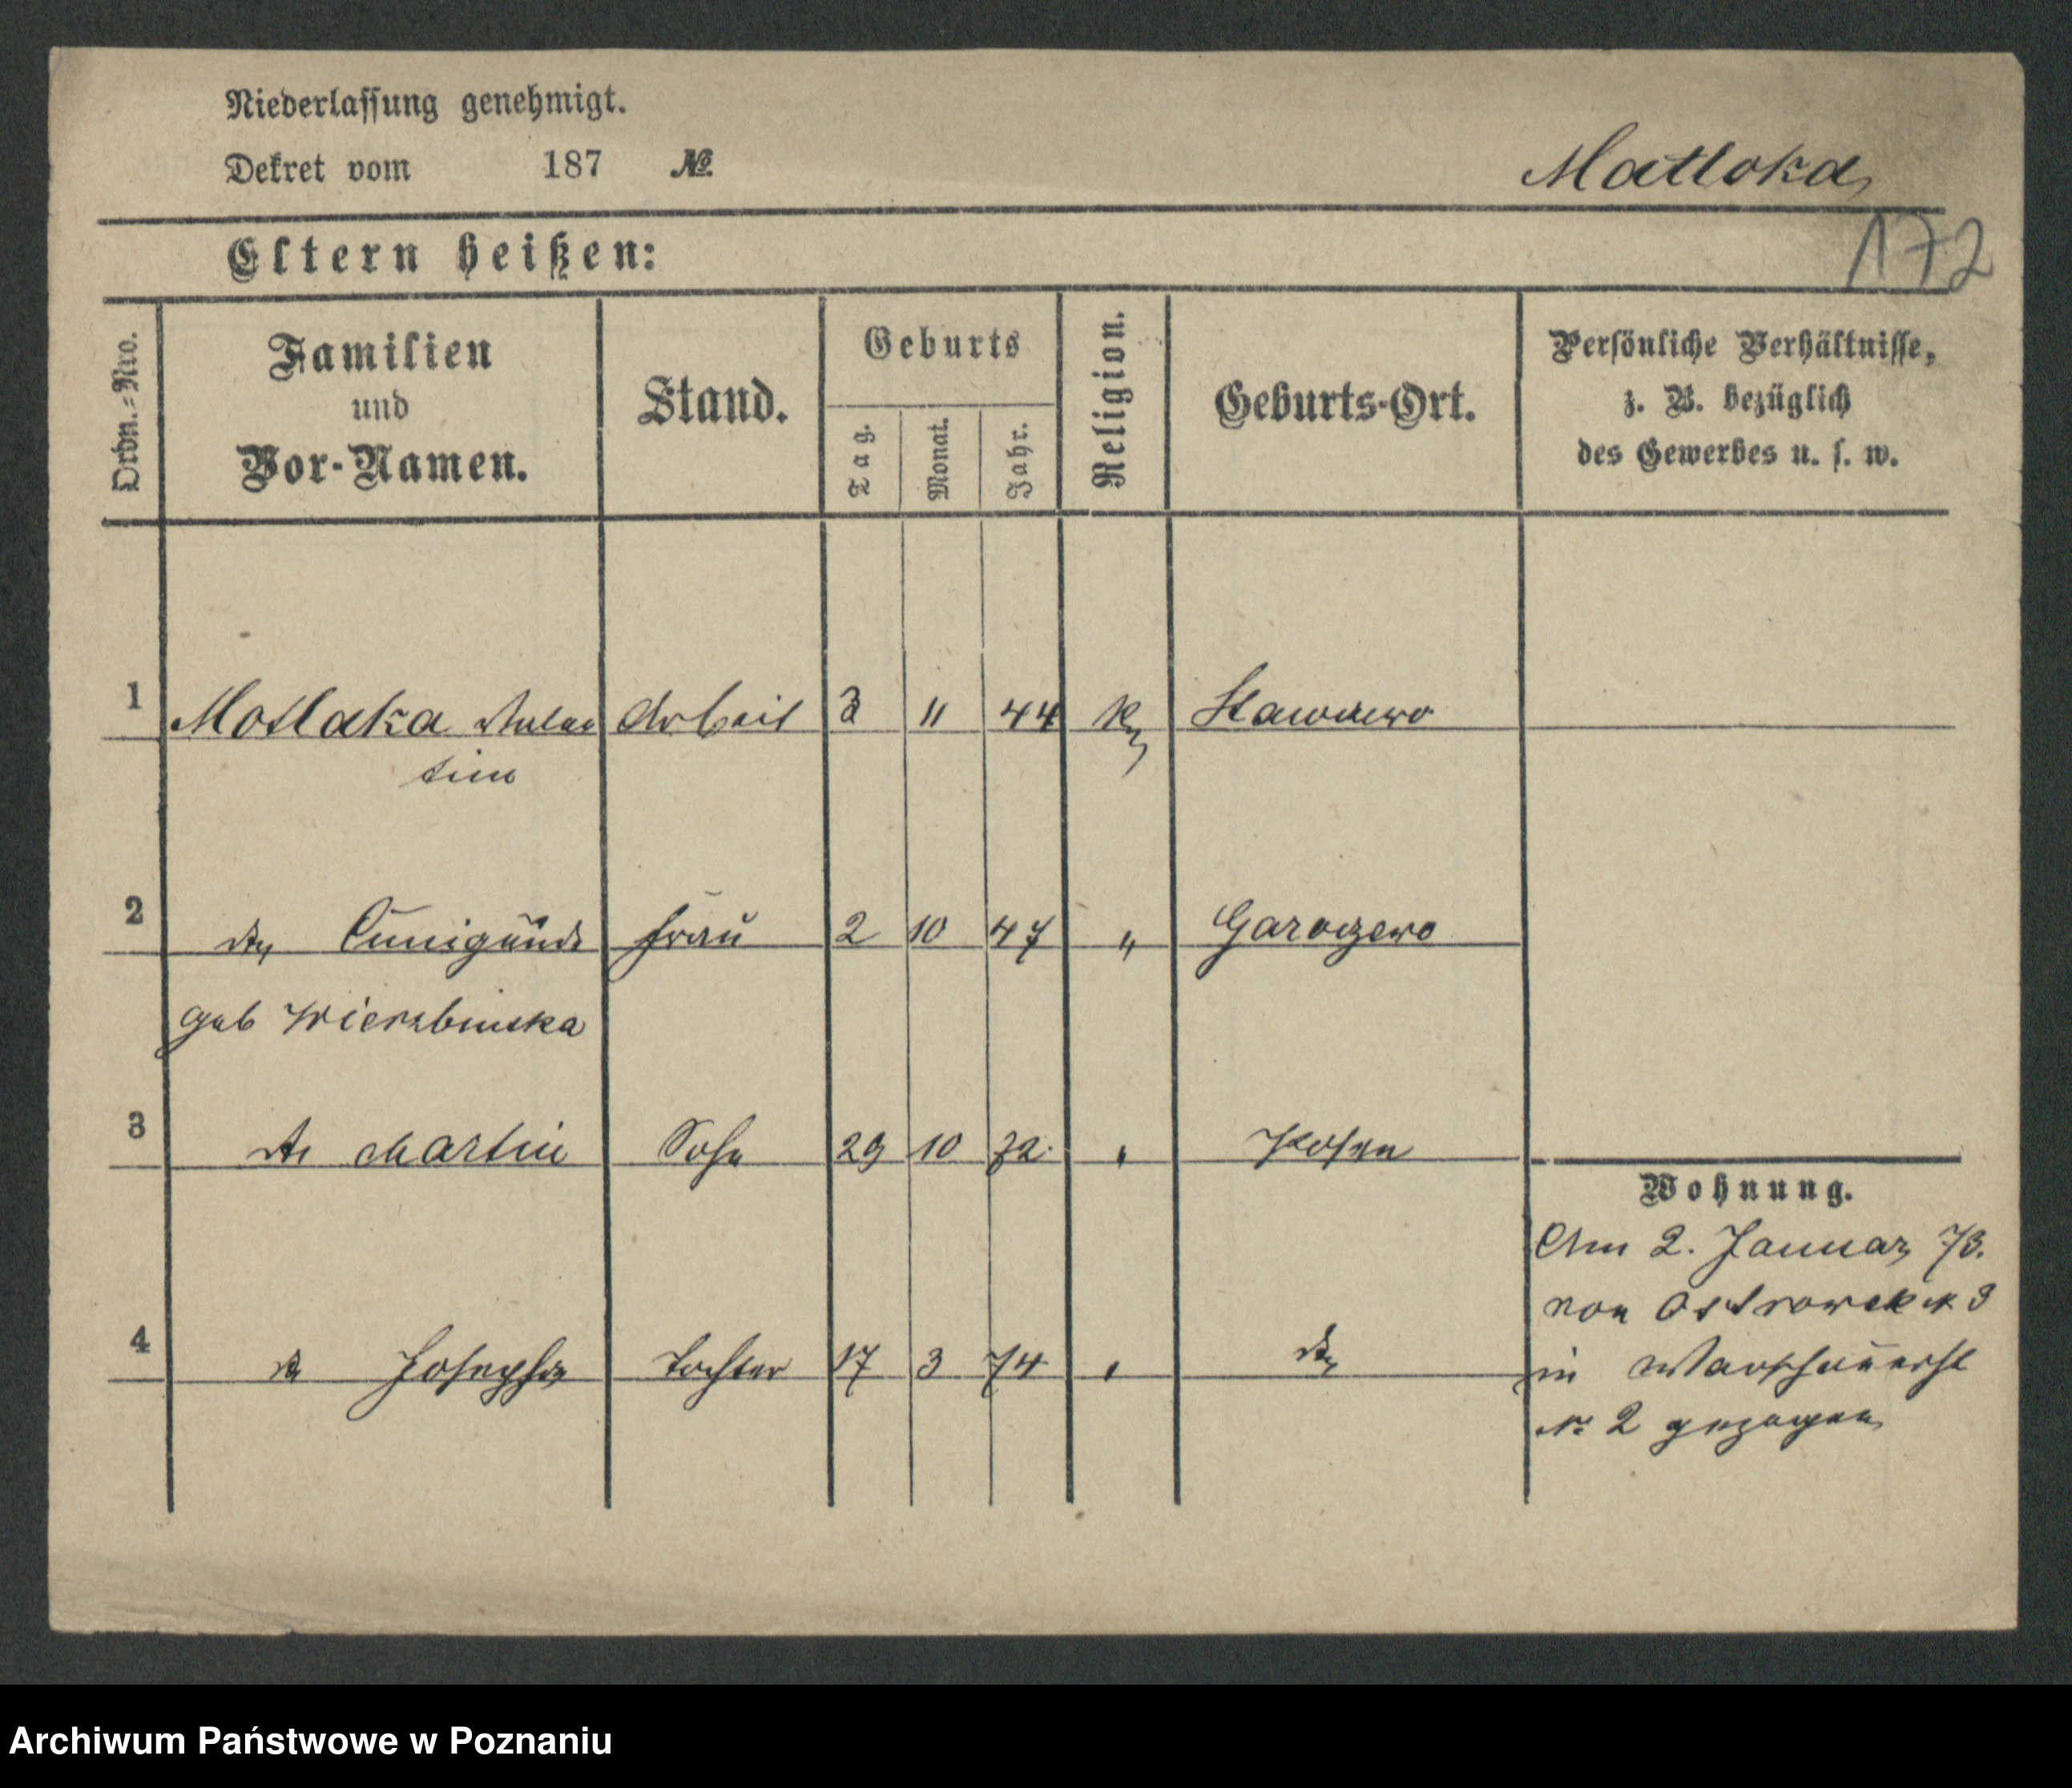 Niederlassung genehmigt.
Dekret vom 187 №
Matloka
Eltern heißen:
172
Ordn.=Nro.
Familien
und
Vor-Namen.
Stand.
Geburts
Tag.
Monat.
Jahr.
Religion.
Geburts-Ort.
Persönliche Verhältnisse,
z. B. bezüglich
des Gewerbes u. s. w.
1 Motlaka Valen Arbeit 3 11 44 K
tin
2 Cunigunde Frau 2 10 47 " Garaczewo
geb Wierzbinska
3 Martin Sohn 29 10 72. " Posen
Wohnung.
Am 2. Januar 73.
von Ostrowek N 3
4 Josepha Tochter 17 3 74 "
in Warschauerst
No 2 gezogen
Archiwum Państwowe w Poznaniu